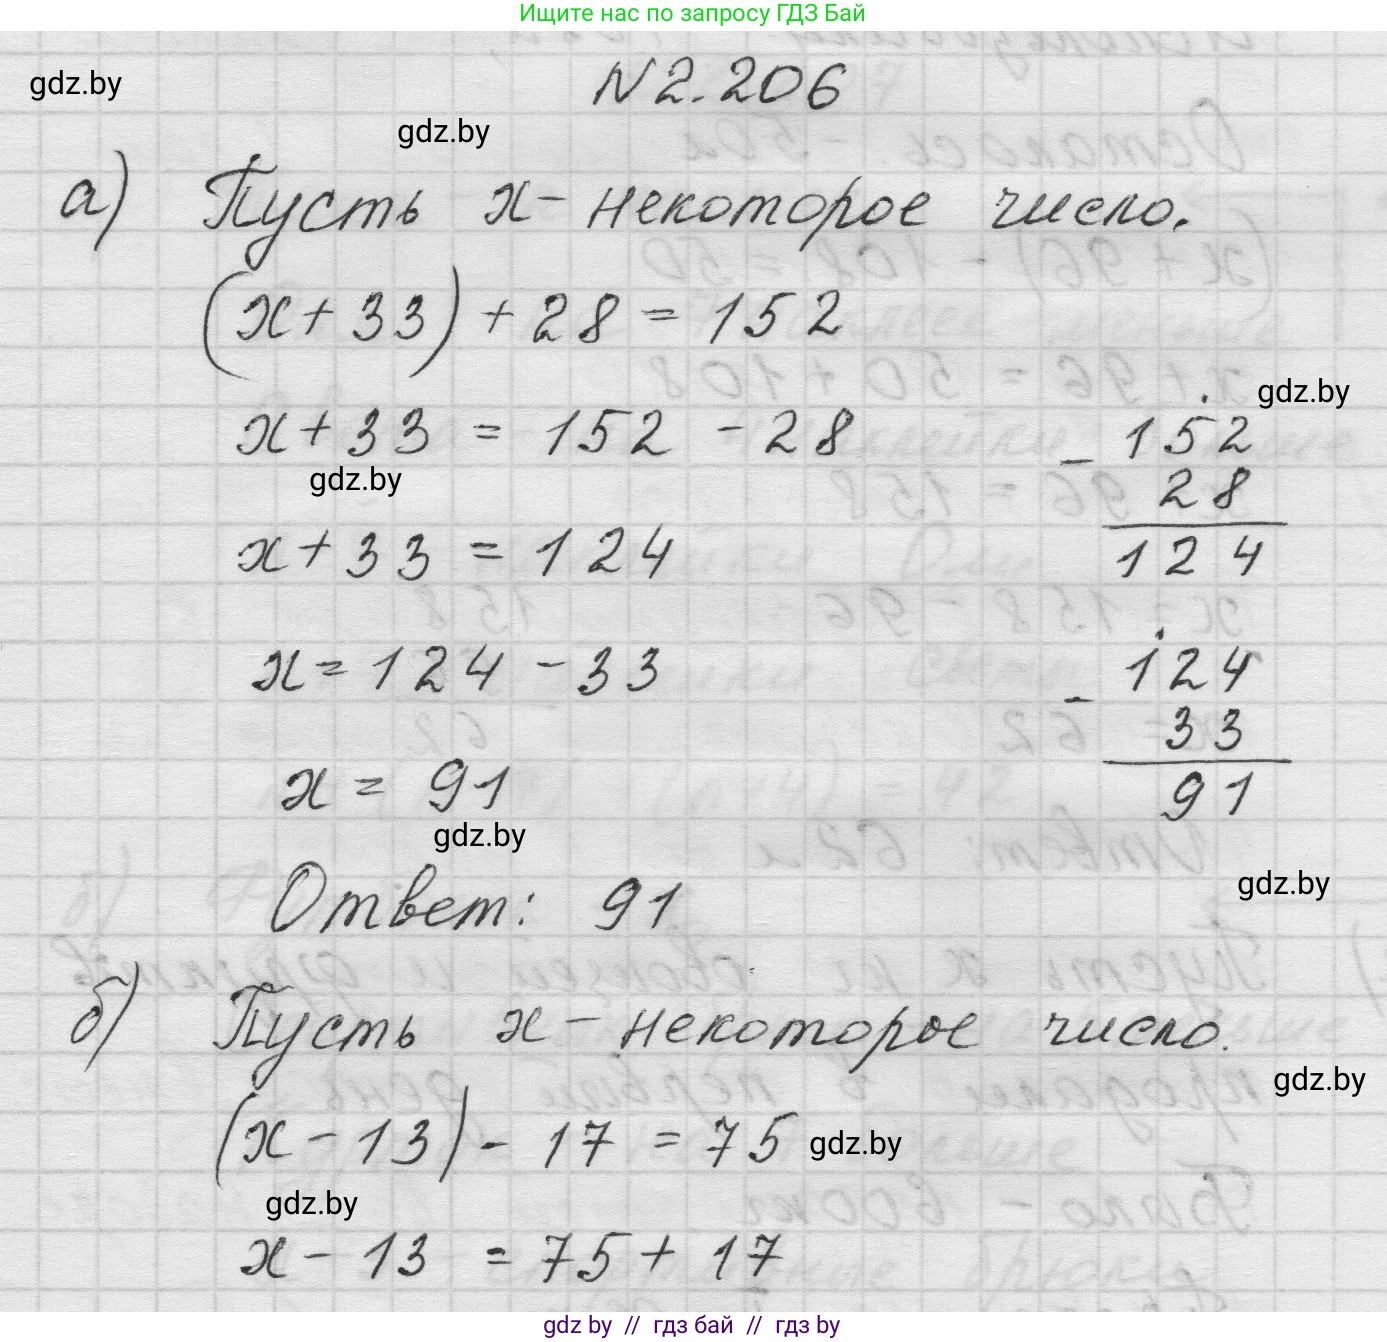 Ищите нас по запросу ГДЗ Бай
gdz.by
N 2.206
gdz.by
а) Пусть x - некоторое число.
(x + 33) + 28 = 152
gdz.by
x + 33 = 152 - 28
gdz.by
x + 33 = 124
- 152
28
124
x = 124 - 33
- 124
33
91
x = 91
gdz.by
gdz.by
Ответ: 91
б) Пусть x - некоторое число.
gdz.by
(x - 13) - 17 = 75
gdz.by
gdz.by
x - 13 = 75 + 17
gdz by // гдз бай // гдз by